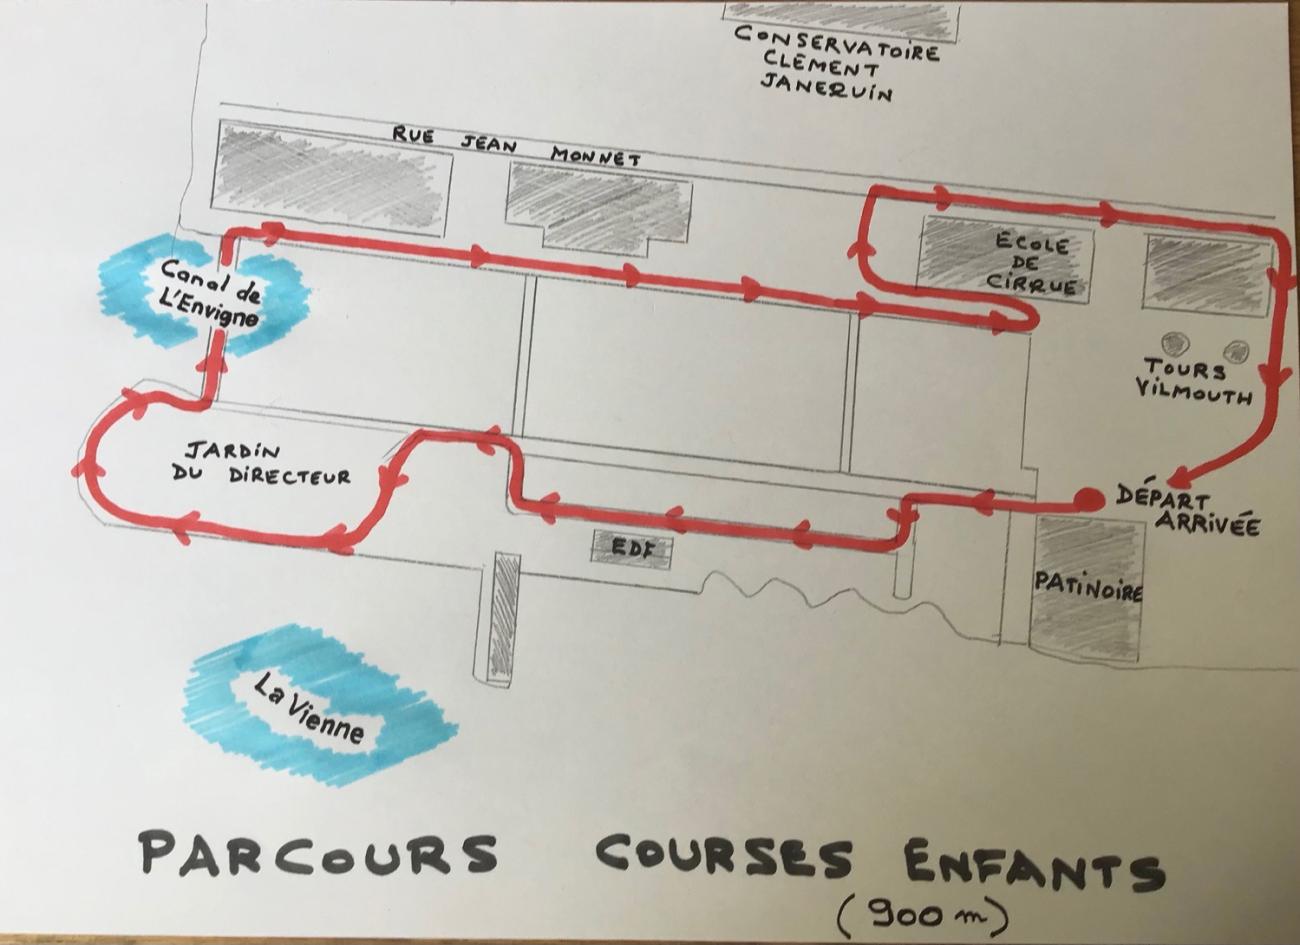 CONSERVATOIRE
CLÉMENT
JANEQUIN
RUE JEAN MONNET
ECOLE
DE
CIRQUE
Canal de
L'Envigne
TOURS
VILMOUTH
JARDIN
DU DIRECTEUR
DÉPART
ARRIVÉE
EDF
PATINOIRE
La Vienne
PARCOURS COURSES ENFANTS
(900 m)